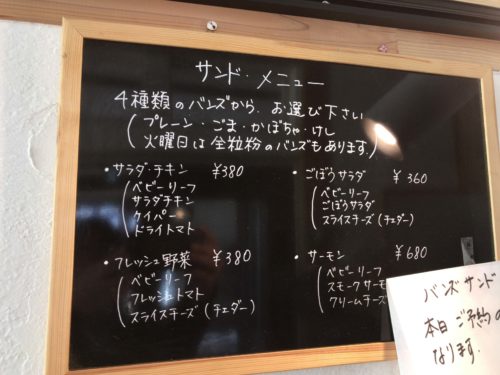 サンド・メニュー
4種類のバンズから、お選び下さい
(プレーン・ごま・かぼちゃ・けし
火曜日は全粒粉のバンズもあります。)
・サラダ・チキン ¥380
ベビーリーフ
サラダチキン
ケイパー
ドライトマト
・フレッシュ野菜 ¥380
ベビーリーフ
フレッシュトマト
スライスチーズ(チェダー)
・ごぼうサラダ ¥360
ベビーリーフ
ごぼうサラダ
スライスチーズ(チェダー)
・サーモン ¥680
ベビーリーフ
スモークサーモ
クリームチーズ
バンズサンド
本日ご予約の
なります.